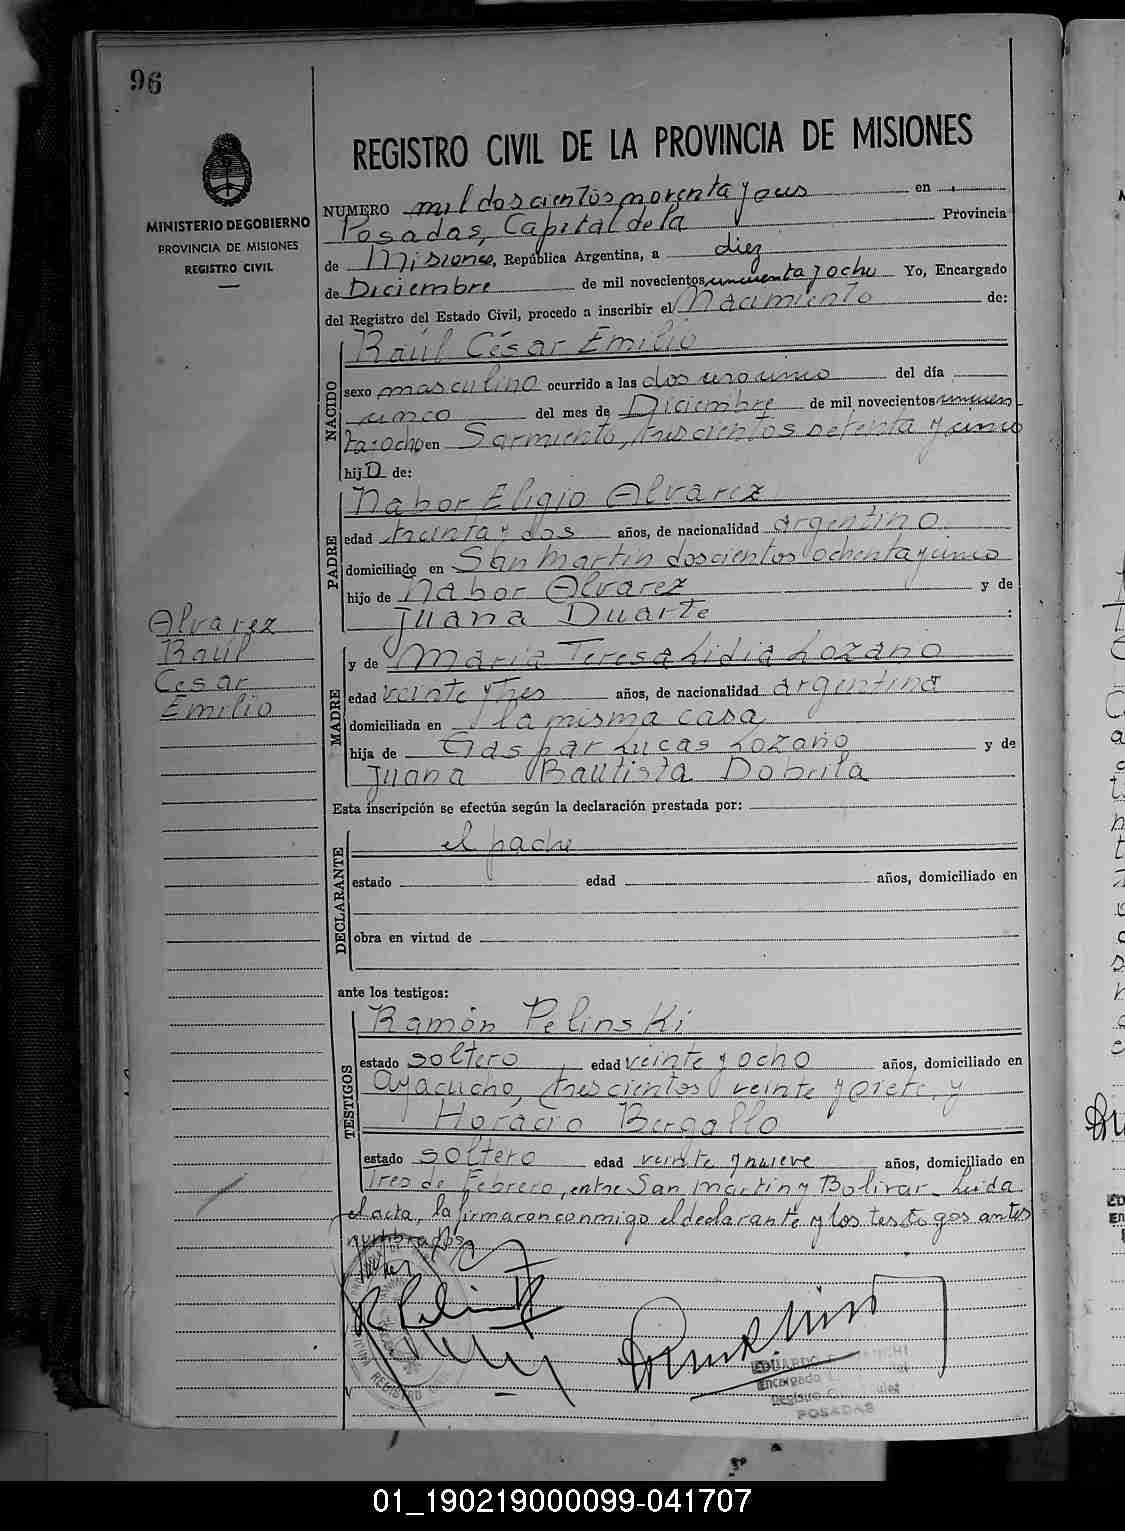 96
MINISTERIO DE GOBIERNO
PROVINCIA DE MISIONES
REGISTRO CIVIL
REGISTRO CIVIL DE LA PROVINCIA DE MISIONES
NUMERO mil doscientos noventa y seis en
Posadas, Capital de la Provincia
de Misiones, República Argentina, a diez
de Diciembre de mil novecientos cincuenta y ocho Yo, Encargado
del Registro del Estado Civil, procedo a inscribir el Nacimiento de:
NACIDO
Raúl César Emilio
sexo masculino ocurrido a las dos cero cinco del día
cinco del mes de Diciembre de mil novecientos cincuen
ta y ocho en Sarmiento, trescientos setenta y cinco
hijo de:
PADRE
Nabor Eligio Alvarez
edad treinta y dos años, de nacionalidad argentino
domiciliado en San Martin doscientos ochenta y cinco
hijo de Nabor Alvarez y de
Juana Duarte :
Alvarez
Raúl
Cesar
Emilio
MADRE
y de María Teresa Lidia Lozano
edad veinte y tres años, de nacionalidad argentina
domiciliada en la misma casa
hija de Gaspar Lucas Lozano y de
Juana Bautista Dobrila
Esta inscripción se efectúa según la declaración prestada por:
DECLARANTE
el padre
estado edad años, domiciliado en
obra en virtud de
ante los testigos:
TESTIGOS
Ramón Pelinski
estado soltero edad veinte y ocho años, domiciliado en
Ayacucho, trescientos veinte y siete, y
Horacio Bergallo
estado soltero edad veinte y nueve años, domiciliado en
Tres de Febrero, entre San Martin y Bolivar. Leida
el acta, la firmaron conmigo el declarante y los testigos antes
nombrados
EDUARDO
Encargado
POSADAS
01_190219000099-041707